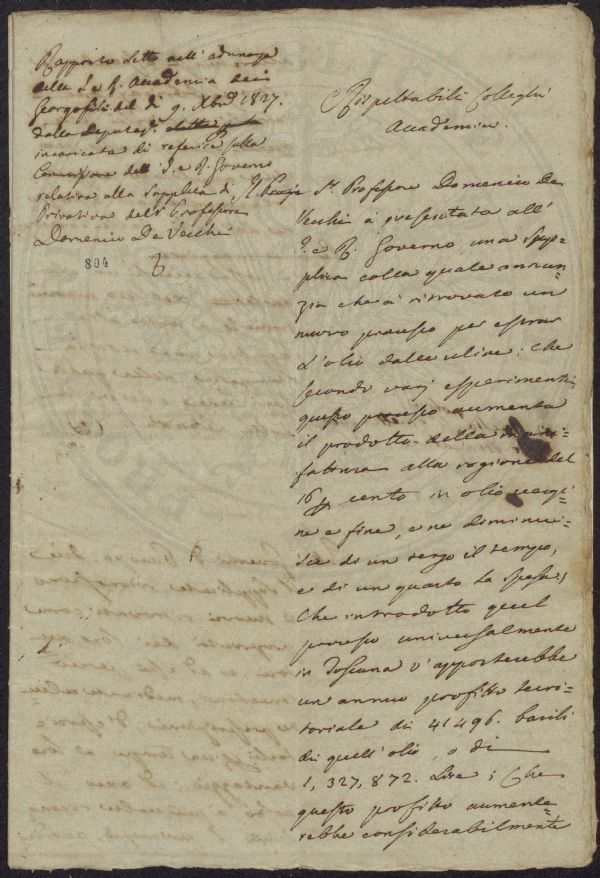 Rapporto letto nell' adunanza
della I. e R. Accademia dei
Georgofili del dì 9. Xbre 1827.
dalla Deputaz.
incaricata di referire sulla
Commissione dell' I. e R. Governo
relativa alla Supplica di
Privativa del Sr Professore
Domenico De Vecchi
804
Rispettabili Colleghi
Accademici.
Il Sr. Professore Domenico De
Vecchi à presentata all'
I. e R. Governo una Sup-
plica colla quale annun-
zia che à ritrovato un
nuovo processo per estrar
l'olio dalle ulive; Che
secondo varj esperimenti
questo processo aumenta
il prodotto della mani-
fattura alla ragione del
16 per cento in olio vergi-
ne e fine, e ne diminui-
sce di un terzo il tempo,
e di un quarto la spesa;
Che introdotto quel
processo universalmente
in Toscana v'apporterebbe
un annuo profitto terri-
toriale di 41496. barili
di quell'olio, o di
1,327,872. Lire; Che
questo profitto aumente-
rebbe considerabilmente